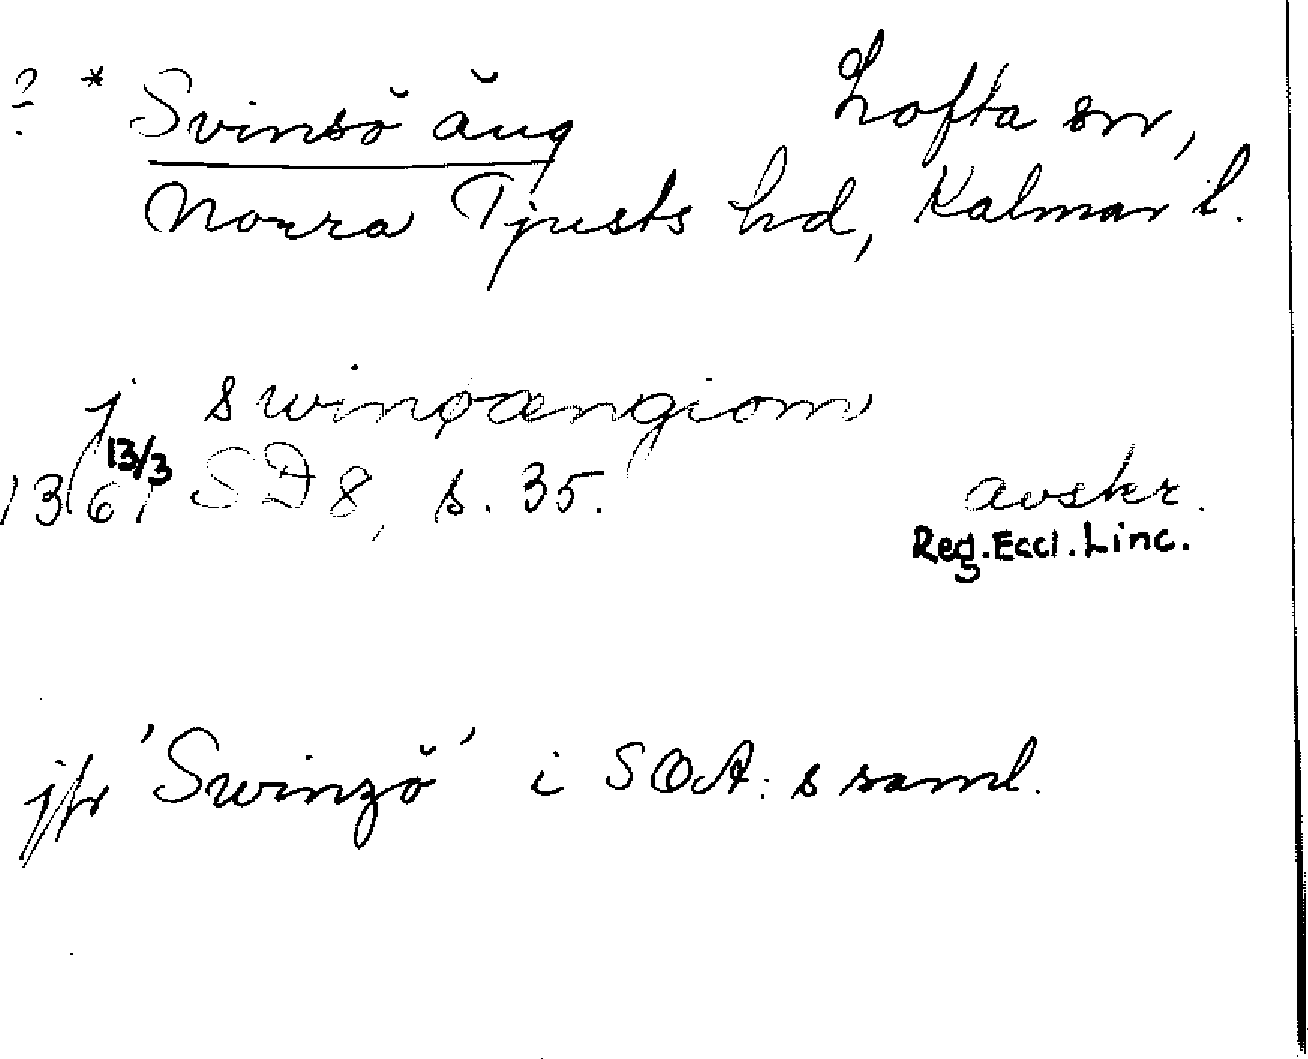 ? * Svinsö äng Lofta sn,
Norra Tjusts hd, Kalmar l.
j swinøængiom
1361 13/3 SD 8, s. 35. avskr.
Reg. Eccl. Linc.
jfr 'Swinzö' i SOA:s saml.